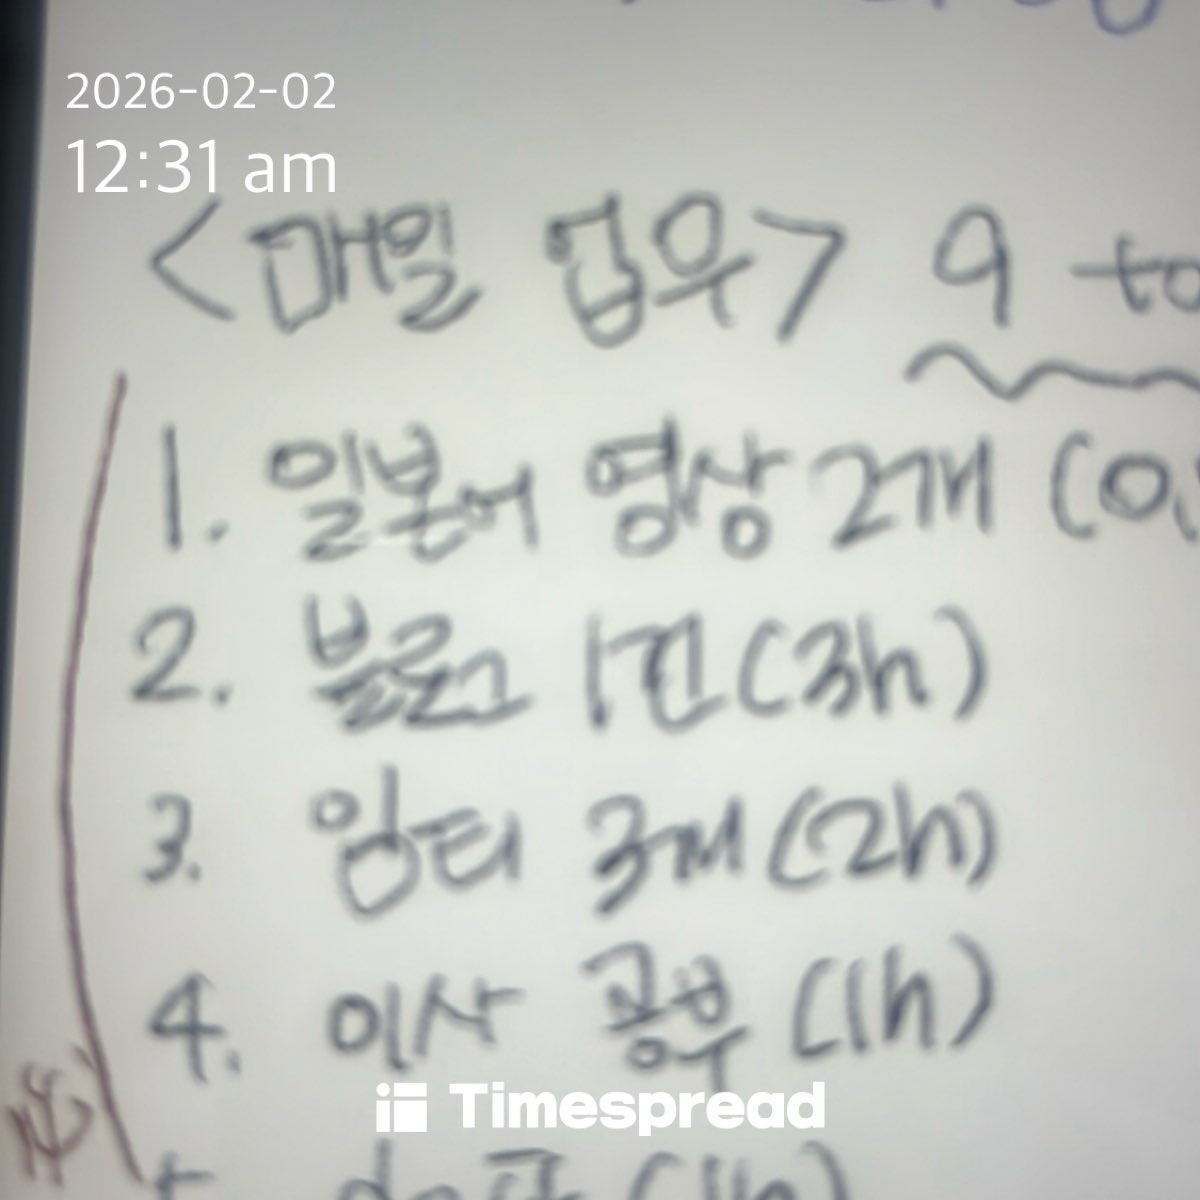 2026-02-02
12:31 am
<매일 업무> 9 to
1. 일본어 영상 2개 (0.
2. 블로그 1건 (3h)
3. 잉티 3개 (2h)
4. 이사 공부 (1h)
Timespread